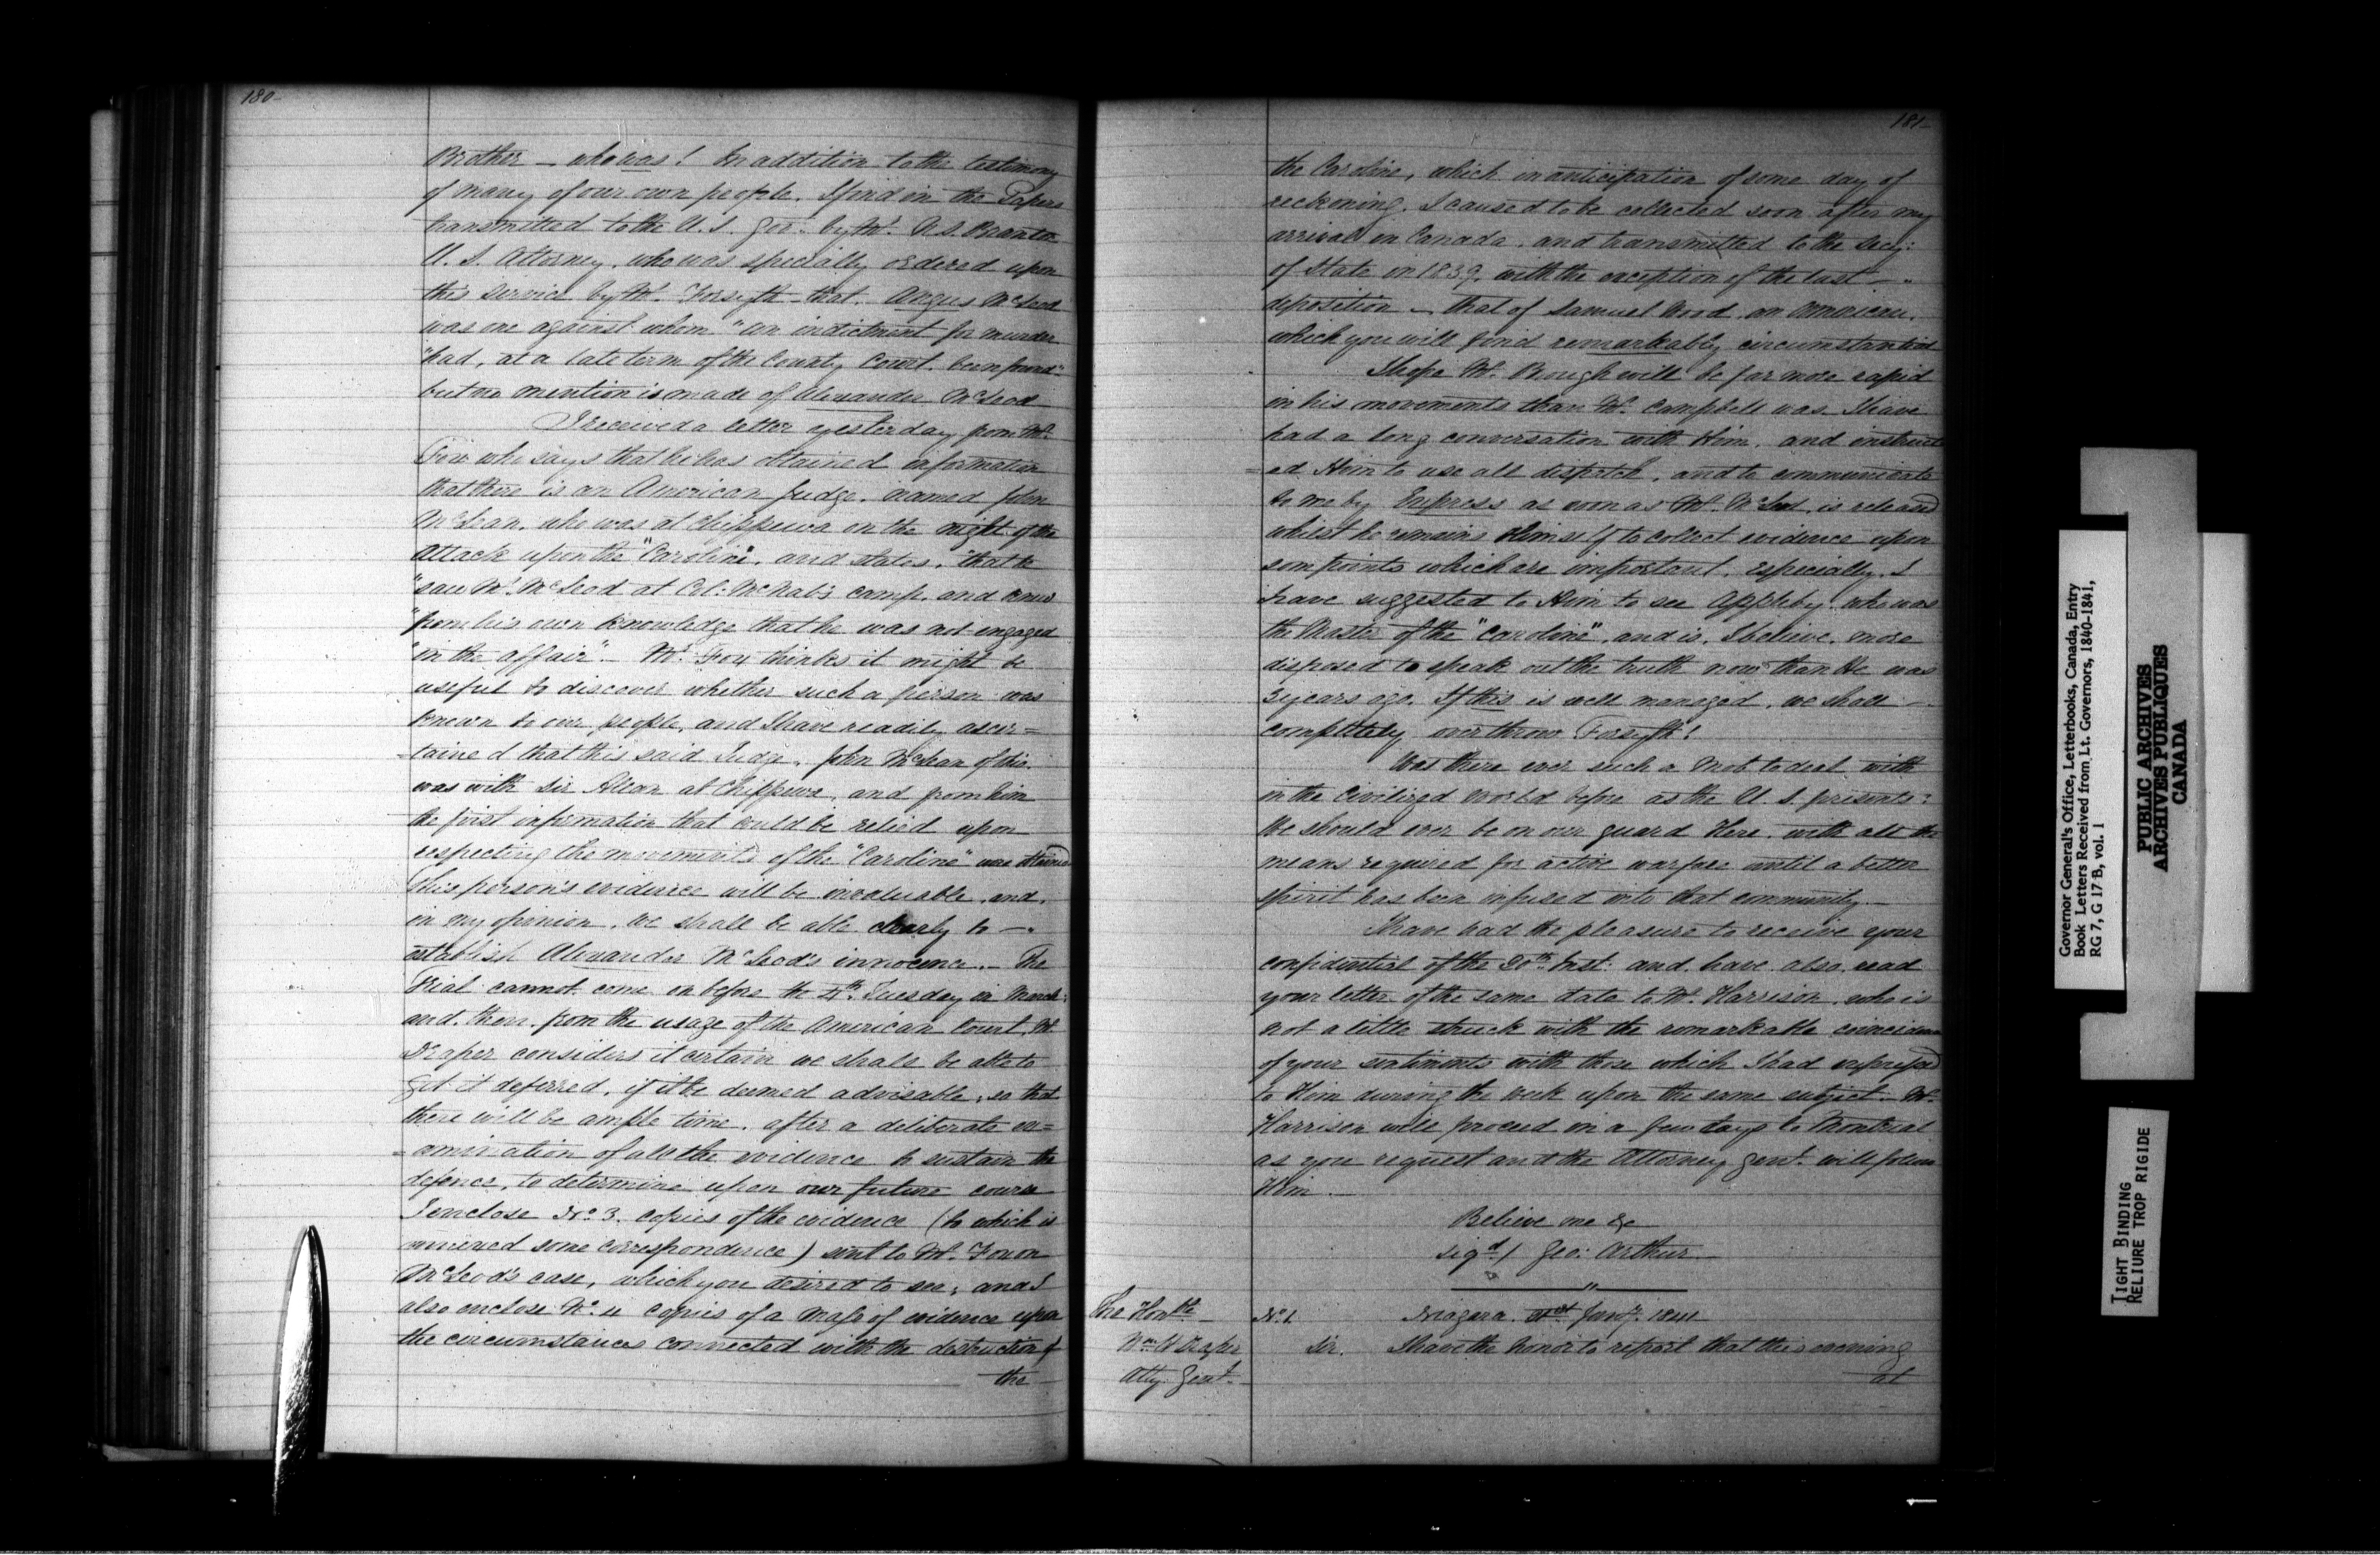 180
Brother — who was! In addition to the testimony
of many of our own people, I find in the Papers
transmitted to the U.S. Gov.t by Mr. N.S. Benton
U.S. Attorney, who was specially ordered upon
this service by Mr. Forsyth that Angus McLeod
was one against whom "an indictment for murder
"had, at a late term of the County Court been found"
but no mention is made of Alexander McLeod
I received a letter yesterday from Mr.
Fox who says that he has obtained information
that there is an American Judge, named John
McLean, who was at Chippewa on the night of the
Attack upon the "Caroline", and states, "that he
"saw Mr. McLeod at Col: McNab's camp, and knew
"from his own knowledge that he was not engaged
"in the affair". — Mr. Fox thinks it might be
useful to discover whether such a person was
known to our people, and I have readily ascer=
=tained that this said Judge, John McLean
was with Sir Allan at Chippewa, and from him
the first information that could be relied upon
respecting the movements of the "Caroline" was obtained
This person's evidence will be invaluable, and,
in my opinion, we shall be able clearly to —
establish Alexander McLeod's innocence. — The
Trial cannot come on before the 4th. Tuesday in March
and, then, from the usage of the American Court, Mr
Draper considers it certain we shall be able to
get it deferred, if it be deemed advisable, so that
there will be ample time, after a deliberate ex=
=amination of all the evidence to sustain the
defence, to determine upon our future course
I enclose No. 3. copies of the evidence (to which is
annexed some correspondence) sent to Mr. Fox on
McLeod's case, which you desired to see; and I
also enclose No. 4 copies of a mass of evidence upon
the circumstances connected with the destruction of
the
181
the Caroline, which in anticipation of some day of
reckoning, I caused to be collected soon after my
arrival in Canada, and transmitted to the Secy:
of State in 1839, with the exception of the last —
deposition — that of Samuel Wood, an American,
which you will find remarkably circumstantial
I hope Mr. Brough will be far more rapid
in his movements than Mr. Campbell was I have
had a long conversation with Him, and instruct
=ed Him to use all dispatch, and to communicate
to me by Express as soon as Mr. McLeod is released
whilst he remains Himself to collect evidence upon
som points which are important, especially, I
have suggested to Him to see Appleby, who was
the Master of the "Caroline", and is, I believe, more
disposed to speak out the truth now than He was
3 years ago. If this is well managed, we shall —
completely overthrow Forsyth!
Was there ever such a Mob to deal with
in the Civilized World before as the U.S. presents:
We should ever be on our guard Here, with all the
means required for active warfare until a better
spirit has been infused into that community. —
I have had the pleasure to receive your
confidential of the 20th. Inst: and have also read
your letter of the same date to Mr. Harrison, who is
not a little struck with the remarkable coincidence
of your sentiments with those which I had expressed
to Him during the week upon the same subject. Mr.
Harrison will proceed in a few days to Montreal
as you request and the Attorney Genl. will follow
Him.
Believe me &c
Sigd./ Geo: Arthur
The Honble
Wm. H Draper
Atty. Genl.
No. 1
Niagara Jany. 1841
Sir. I have the honor to report that this evening
at
Governor General's Office, Letterbooks, Canada, Entry
Book Letters Received from Lt. Governors, 1840-1841,
RG 7, G 17 B, vol. 1
PUBLIC ARCHIVES
ARCHIVES PUBLIQUES
CANADA
TIGHT BINDING
RELIURE TROP RIGIDE